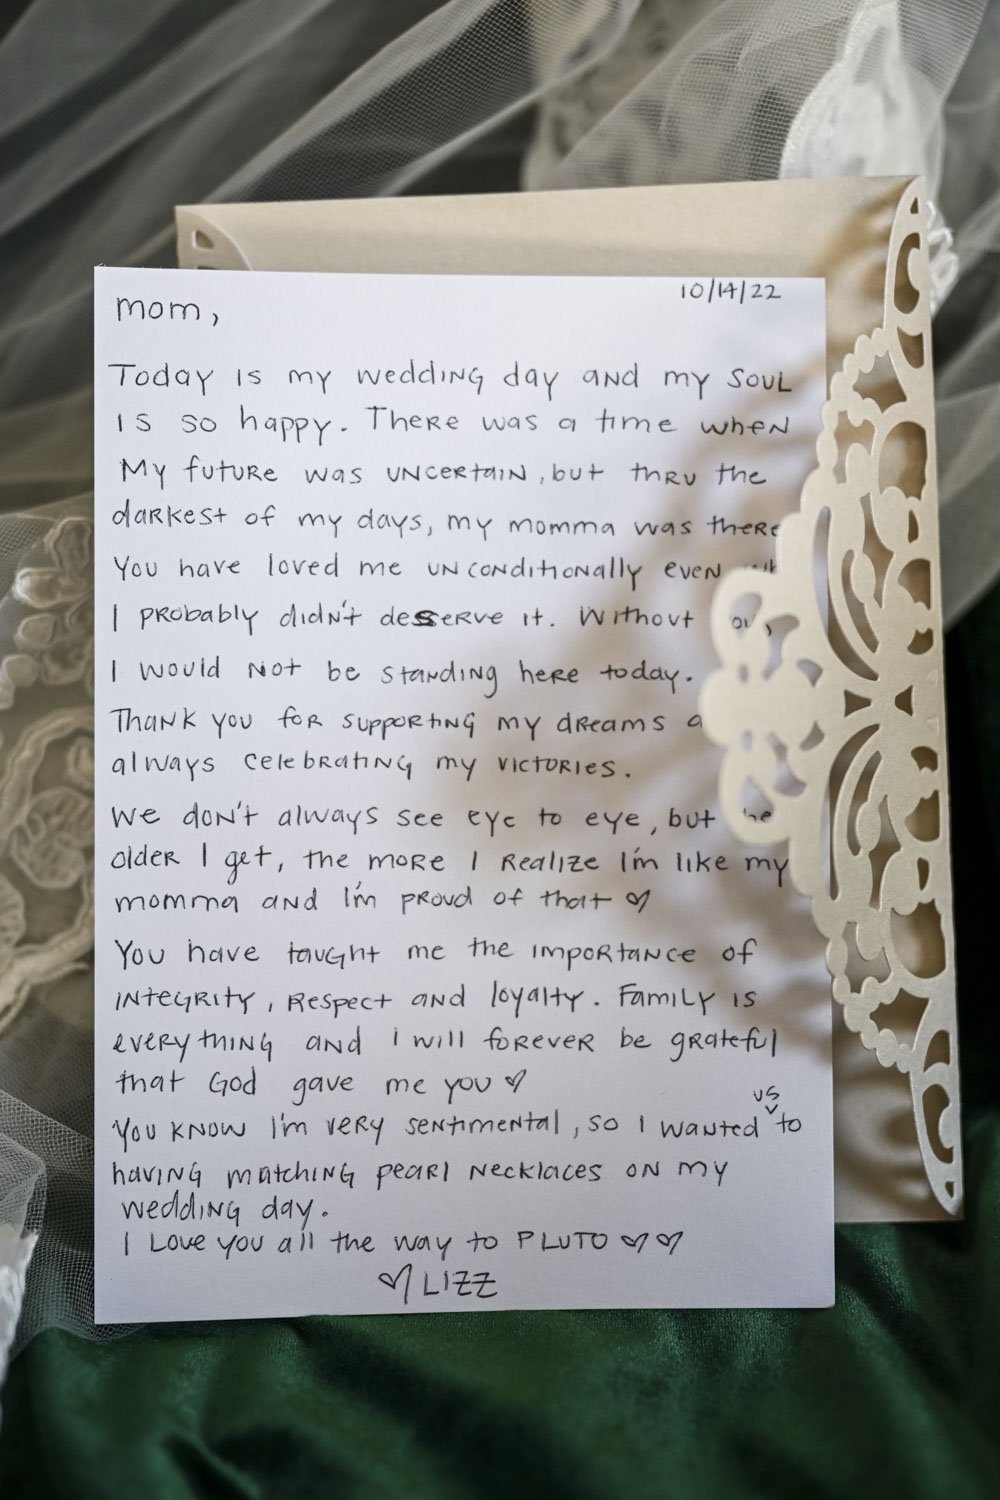 10/14/22
mom,
Today is my wedding day and my soul
is so happy. There was a time when
My future was uncertain, but thru the
darkest of my days, my momma was there
You have loved me unconditionally even
I probably didn't deserve it. Without
I would not be standing here today.
Thank you for supporting my dreams
always celebrating my victories.
We don't always see eye to eye, but
older I get, the more I realize I'm like my
momma and I'm proud of that ♡
You have taught me the importance of
integrity, respect and loyalty. Family is
everything and I will forever be grateful
that God gave me you ♡
You know I'm very sentimental, so I wanted us to
having matching pearl necklaces on my
wedding day.
I Love you all the way to PLUTO ♡ ♡
♡ LIZZ